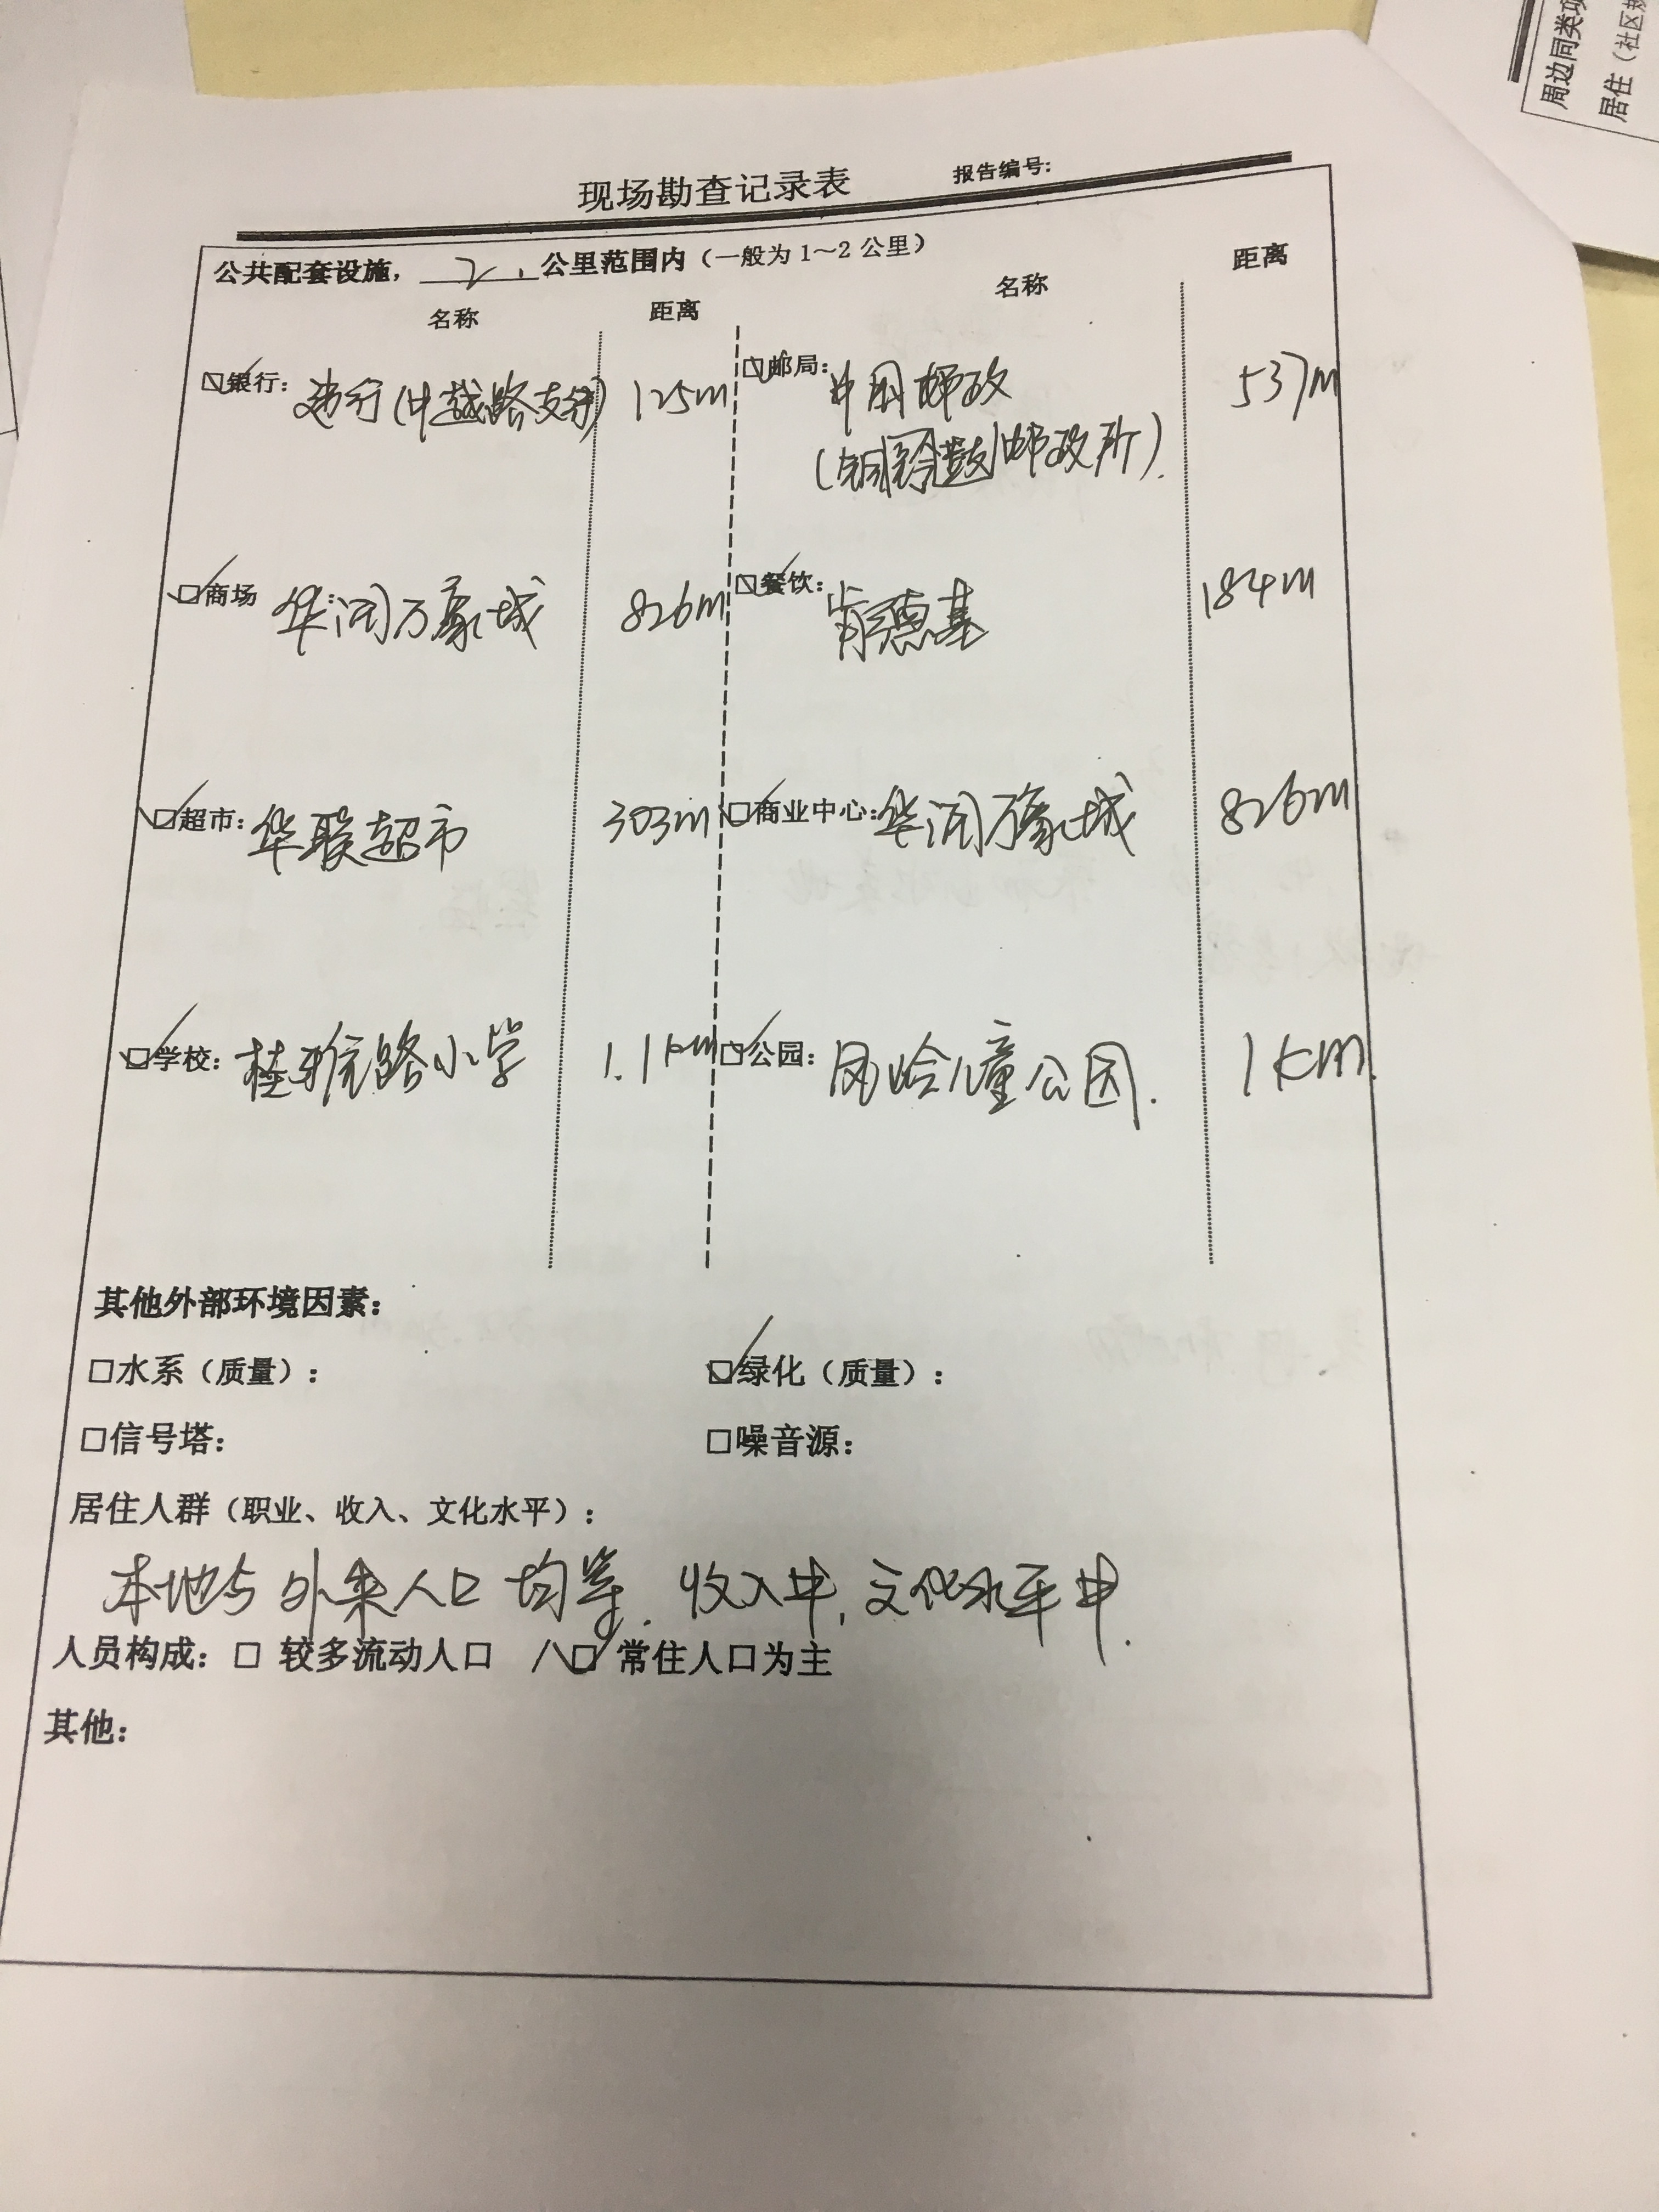 周边同类项
居住（社区规
现场勘查记录表 报告编号:
公共配套设施， 2 公里范围内（一般为 1～2 公里）
名称 距离 名称 距离
☑银行: 建行(中越路支行) 125m ☑邮局: 中国邮政 537m
(铜鼓邮政所).
☑商场: 华润万象城 826m ☑餐饮: 肯德基 184m
☑超市: 华联超市 303m ☑商业中心: 华润万象城 826m
☑学校: 桂雅路小学 1.1km ☑公园: 凤岭儿童公园. 1km.
其他外部环境因素:
□水系（质量）: ☑绿化（质量）:
□信号塔: □噪音源:
居住人群（职业、收入、文化水平）:
本地与外来人口均等. 收入中, 文化水平中.
人员构成: □ 较多流动人口 ☑ 常住人口为主
其他: